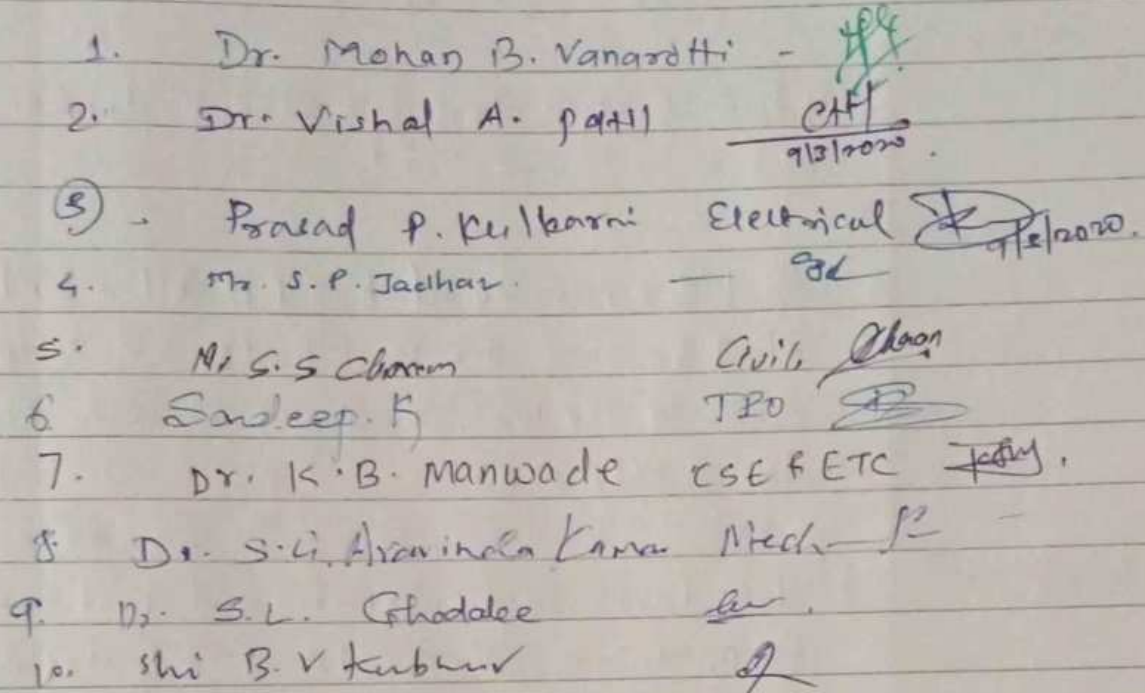 1. Dr. Mohan B. Vanarotti -
2. Dr. Vishal A. Patil
9/3/2020.
3. Prasad P. Kulkarni Electrical 9/3/2020.
4. Mr. S. P. Jadhav. —
5. Mr S. S Chavan Civil,
6 Sandeep. K TPO
7. Dr. K. B. Manwade CSE & ETC
8. Dr. Aravinda Mech
9. Dr. S. L. Ghodake
10. Shri B. V